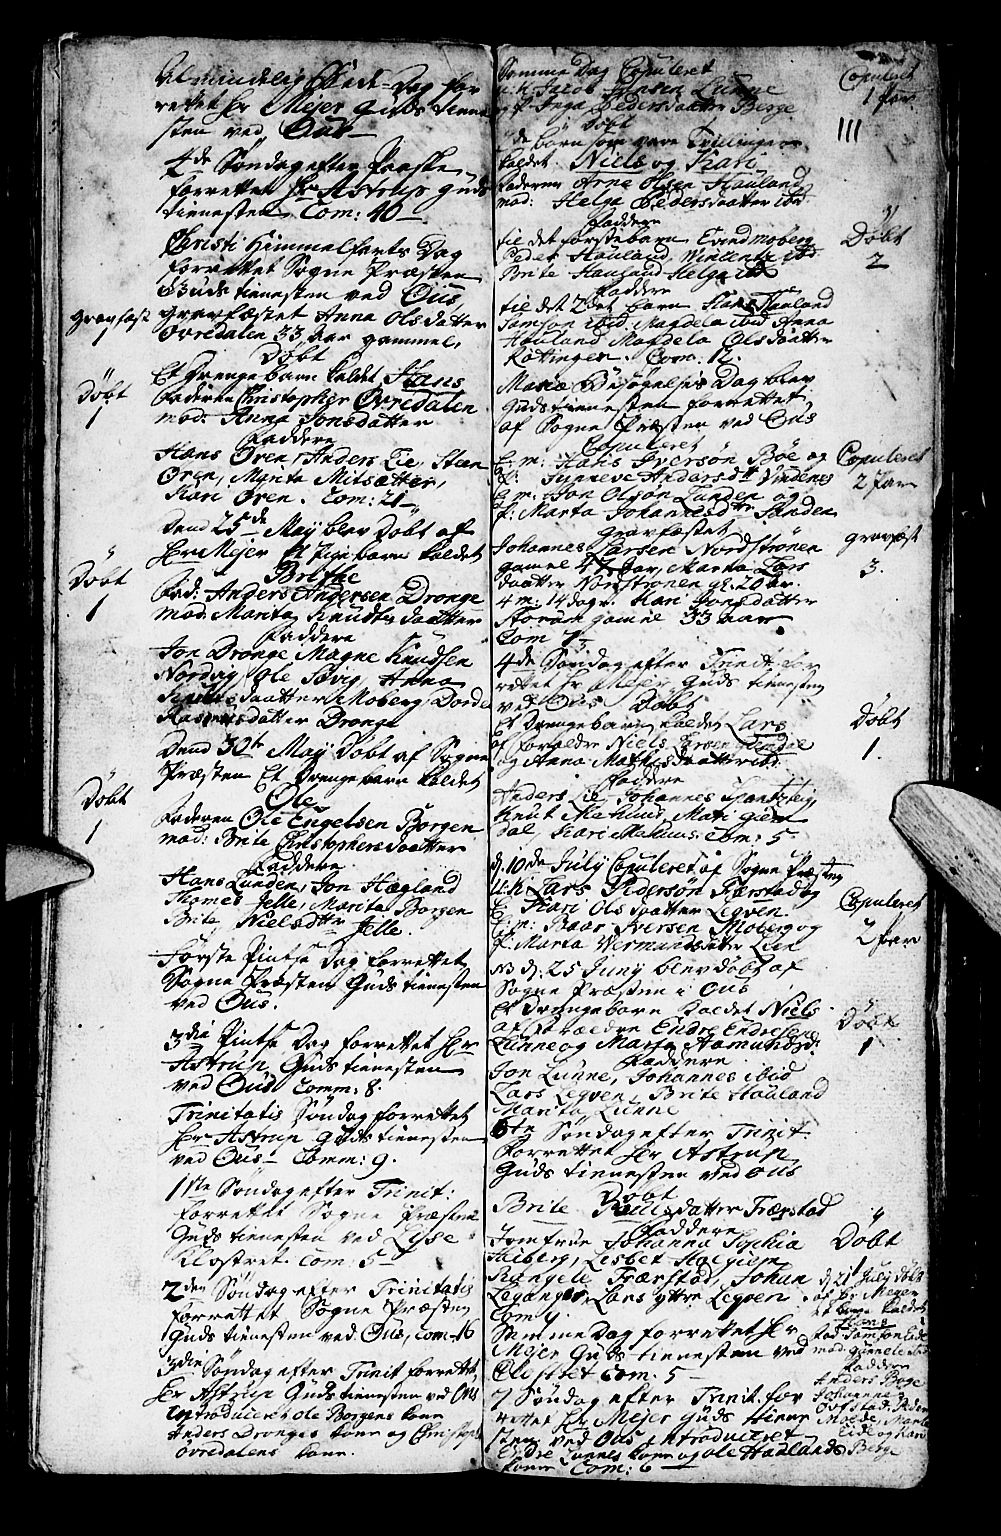 Almindelig Bede-Dag for
rettet Hr Mejer Guds tiene
sten ved Ous
4de Søndag efter Paaske
forrettet Hr Astrup Guds
tienesten Com: 40
Christi Himmelfarts Dag
forrettet Sogne Præsten
Guds tienesten ved Ous,
gravfæst
1
gravfæstet Anna Olsdatter
Øvredalen 33 Aar gammel.
Døbt
Døbt
1
Et Drengebarn kaldet Hans
Faderen Christopher Øvredalen
mod: Anna Jonsdatter
Faddere
Hans Øren, Anders Lie, Steen
Øren, Mynta Mitsætter,
Kari Øren. Com: 21
Dend 25de May blev Døbt af
Døbt
1
Hr Mejer Et Pigebarn kaldet
Brithe
Fad: Anders Andersen Drønge
mod: Marita Knudsdaatter
Faddere
Jon Drønge Magne Knudsen
Nordag Ole Søvig, Anna
daatter Moberg Dorde
Rasmusdatter Drønge
Dend 30te May Døbt af Sogne
Præsten Et Drengebarn kaldet
Døbt
1
Ole
Faderen Ole Engelsen Borgen
mod: Brite Christophersdaatter
Faddere
Hans Lunden, Jon Hægland
Thomes Jelle, Marita Borgen
Brite Nielsdtr Jelle.
Første Pintse Dag forrettet
Sogne Præsten Guds tienesten
ved Ous.
3die Pintse Dag forrettet Hr
Astrup Guds tienesten
ved Ous Comm: 8.
Trinitatis Søndag forrettet
Hr Astrup Guds tienesten
ved Ous Comm: 9.
1ste Søndag efter Trinit:
forrettet Sogne Præsten
Guds tienesten ved Lyse
Klostret. Com: 5
2den Søndag efter Trinitatis
forrettet Sogne Præsten
Guds tienesten ved Ous, Com 16
3die Søndag efter Trinit forrettet
Hr Astrup Guds tienesten ved Ous
Introduceret Ole Borgens kone
Anders Drønges kone og Christoph
Øvredalens kone.
Samme Dag Copuleret
Copuleret
1 Par
u: k Jacob Jensen Lunne
og p: Inga Pedersdaatter Berge
111
Døbt
2de børn som vare Tvillinger
kaldet Niels og Kari
Faderen Arne Olsen Hauland
mod: Helga Pedersdaatter ibid
Faddere
Døbt
2
til det første barn Evind Moberg
Peder Hauland, Wincents ibid
Brite Hauland Helga ibd
Faddere
til det 2det barn Hans Hauland
Samson ibid, Magdela ibid Anna
Hauland Magdela Olsdaatter
Røttingen. Com: 12.
Mariæ Besøgelses Dag blev
Guds tienesten forrettet
af Sogne Præsten ved Ous
Copuleret
Copuleret
2 Par
E: m: Hans Iverson Bøe og
p: Synneve Andersdtr Vindenes
E: m: Jon Olson Lunden og
p: Marta Johannesdtr Sanden
gravfæstet
gravfæst
3.
Johannes Larsen Nordstrønen
gamel 47 Aar, Marta Lars
daatter Nordstrønen gl: 20 ar.
4 m: 14 dage. Kari Jonsdaatter
Storum gamel 33 aar
Com 7
4de Søndag efter Trinit: for
rettet Hr Mejer Guds tienesten
ved Ous Døbt
Døbt
1.
Et Drengebarn kaldet Lars
af foreldre Niels Larsen Giemdal
og Anna Mathisdaatter ibd.
Faddere
Anders Lie, Johannes Skantzteig
Knut Mahuus Mari Giem
dal, Kari Mahuus. Com: 5
d: 10de July Copuleret af Sogne Præsten
Copuleret
2 Par
u: k Lars Pederson Færstad og
E: Kari Olsdaatter Legven.
E: m: Baar Iversen Moberg og
p: Marta Wermundsdaatter Lien
NB d: 25 Juny blev døbt af
Sogne Præsten i Ous
Døbt
1
Et Drengebarn kaldet Niels
af Forældre Endre Endresen
Lunne og Marta Aamundsdr
Faddere
Jon Lunne, Johannes ibid
Lars Legven, Brite Hauland
Marita Lunne
6te Søndag efter Trinit
forrettet Hr Astrup
Guds tienesten ved Ous
Døbt
Døbt
Brite datter Færstad
Faddere
Jomfrue Johanna Sophia
Heiberg, Lisbet Helgesen
Rangele Færstad, Johan
Legangr, Lars ytre Legven
Com 4.
Samme Dag forrettet Hr
Mejer Guds tienesten ved
Closteret Com: 5
7 Søndag efter Trinit for
rettet Hr Mejer Guds tiene
sten ved Ous Introduceret
Endre Lunnes kone og Ole Haalands
kone Com: 6
d 21 July døbt
af Hr Mejer
et barn kaldet
Hans
fad Samson Eide
mod: Gunnele ibd
Faddere
Anders Boge
Johannes
Øvstad, Peder
Møede, Marite
Eide og Kari
Berge